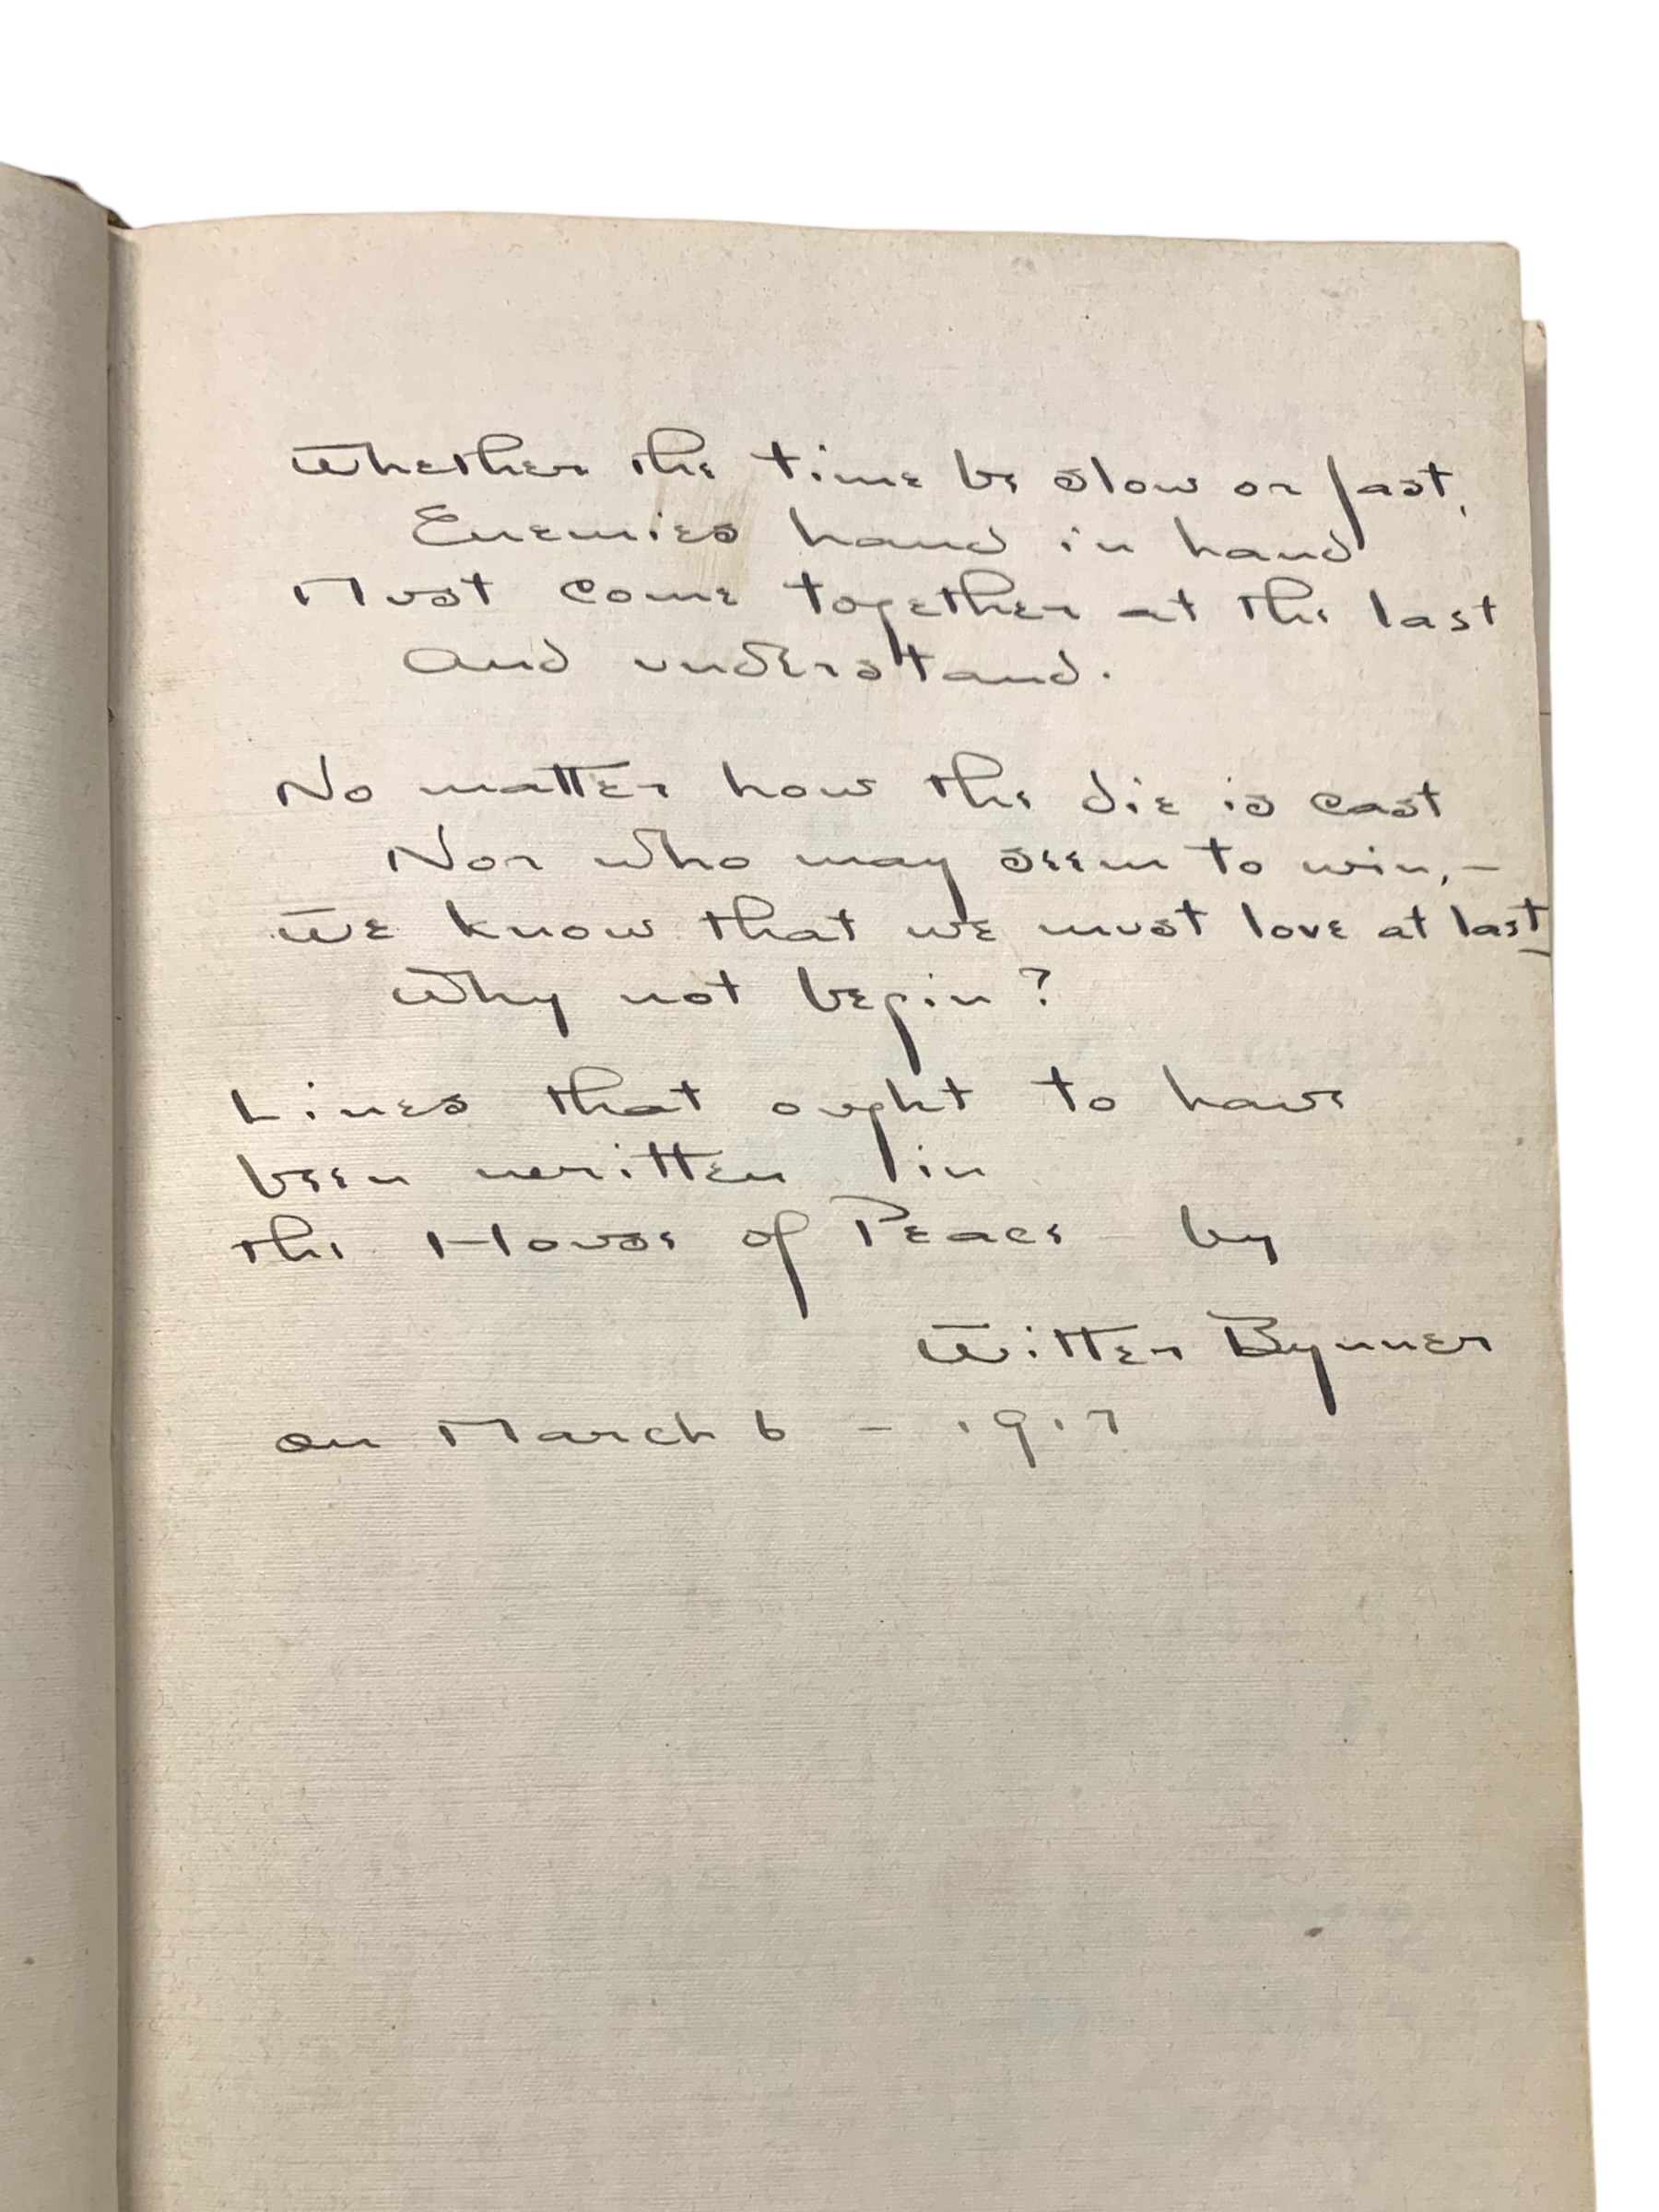 Whether the time be slow or fast,
Enemies hand in hand
Must come together at the last
And understand.
No matter how the die is cast
Nor who may seem to win, –
We know that we must love at last –
Why not begin?
Lines that ought to have
been written in
the House of Peace by
Witter Bynner
on March 6 – 1917